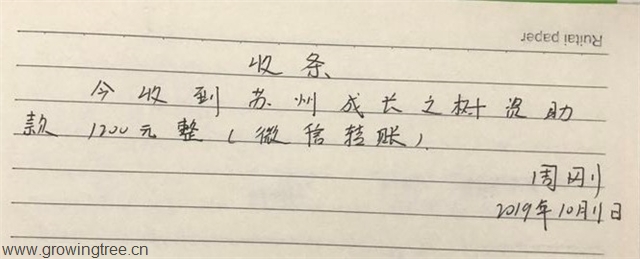 Ruitai paper
收条
今收到苏州成长之树资助
款1200元整(微信转账).
周网刂
2019年10月11日
www.growingtree.cn